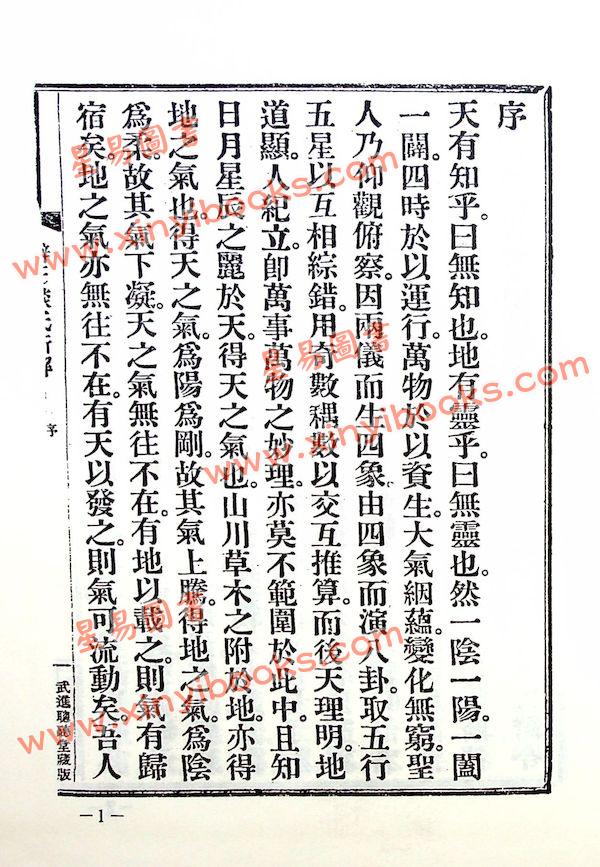 序
天有知乎。曰無知也。地有靈乎。曰無靈也。然一陰一陽。一闔
一闢。四時於以運行。萬物於以資生。大氣絪蘊。變化無窮。聖
人乃仰觀俯察。因兩儀而生四象。由四象而演八卦。取五行
五星以互相綜錯。用奇數耦數以交互推算。而後天理明。地
道顯。人紀立。卽萬事萬物之妙理。亦莫不範圍於此中。且知
日月星辰之麗於天。得天之氣也。山川草木之附於地。亦得
地之氣也。得天之氣。爲陽爲剛。故其氣上騰。得地之氣。爲陰
爲柔。故其氣下凝。天之氣無往不在。有地以載之。則氣有歸
宿矣。地之氣亦無往不在。有天以發之。則氣可流動矣。吾人
序
一
武進 堂藏版
—1—
星易圖書
www.xinyibooks.com
星易圖書
www.xinyibooks.com
星易圖書
www.xinyibooks.com